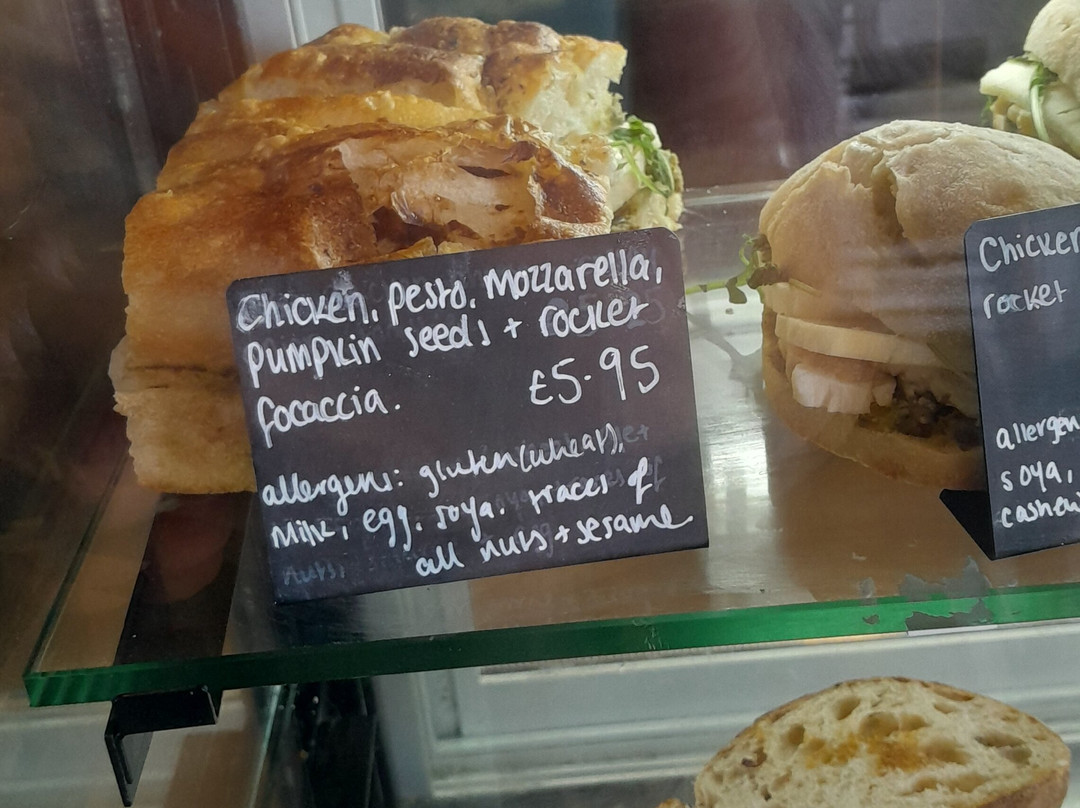 Chicken, pesto, mozzarella,
pumpkin seeds + rocket
focaccia. £5.95
allergens: gluten (wheat),
milk, egg, soya. traces of
all nuts + sesame
Chicken
rocket
allergen
soya,
cashew